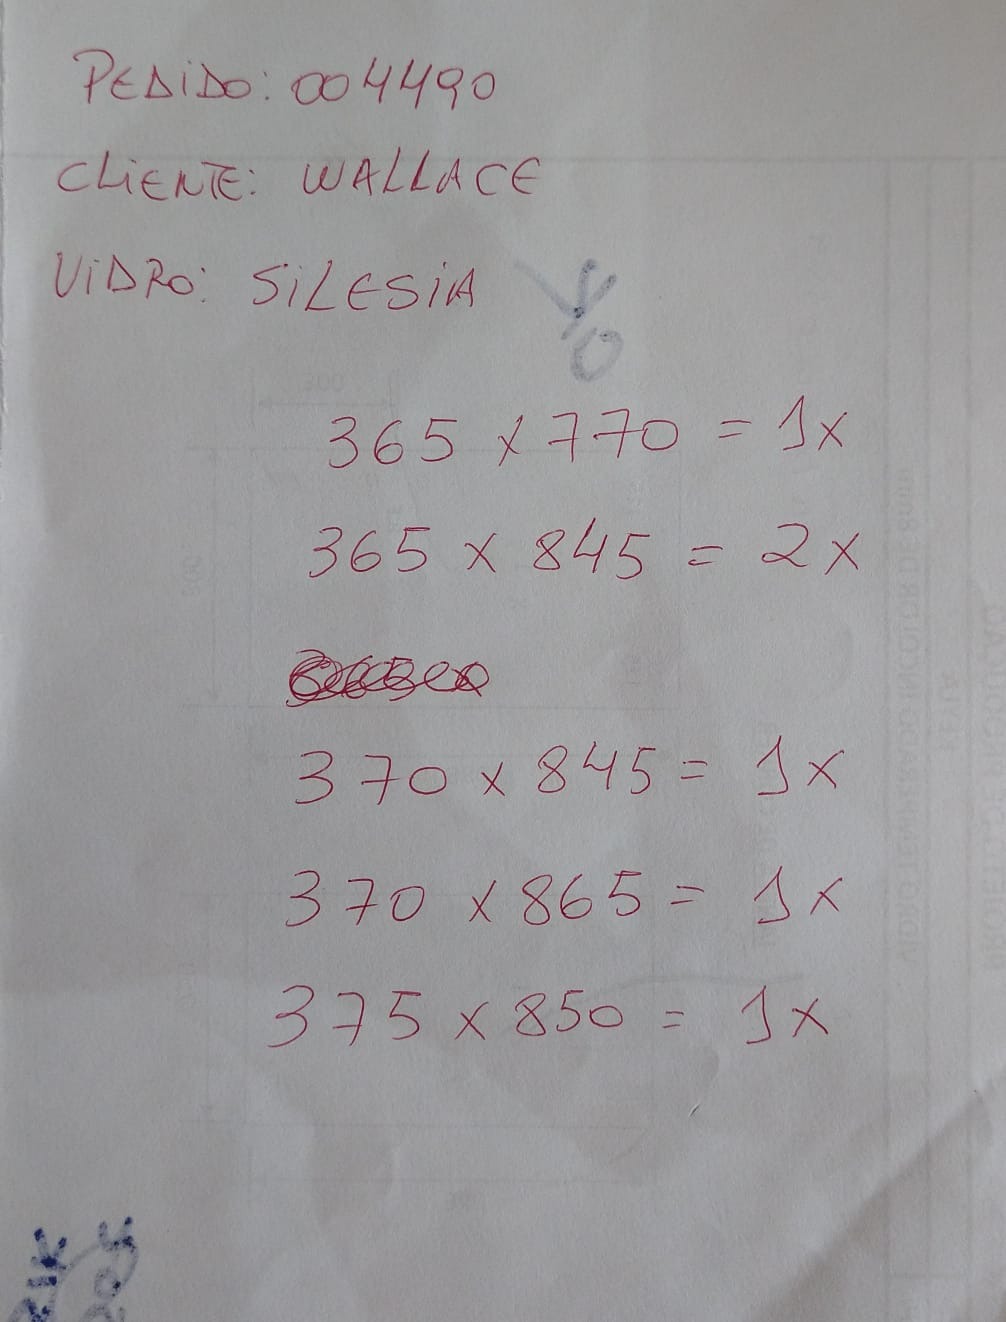 PEDIDO: 004490
CLIENTE: WALLACE
VIDRO: SILESIA
365 x 770 = 1x
365 x 845 = 2x
370 x 845 = 1x
370 x 865 = 1x
375 x 850 = 1x